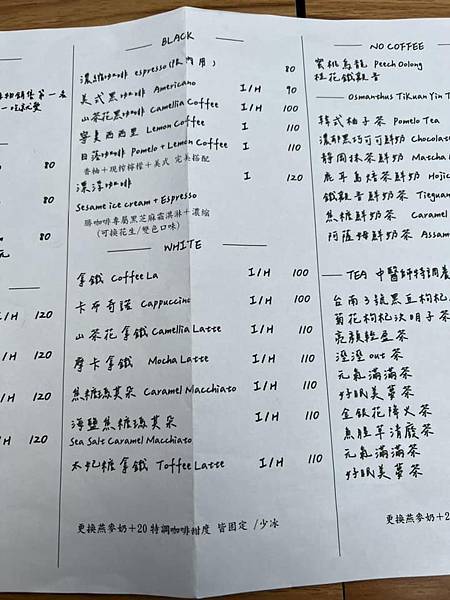 80
80
80
I/H 120
I/H 120
I/H 120
I/H 120
BLACK
濃縮咖啡 espresso 80
美式黑咖啡 Americano I/H 90
山茶花黑咖啡 Camellia Coffee I/H 100
寧夏西西里 Lemon Coffee I 110
日落咖啡 Pomelo + Lemon Coffee I 110
香柚+現榨檸檬+美式 完美搭配
濃淳咖啡 I 120
Sesame ice cream + Espresso
勝咖啡專屬黑芝麻霜淇淋+濃縮
(可換花生/雙色口味)
WHITE
拿鐵 Coffee La I/H 100
卡布奇諾 Cappuccino I/H 100
山茶花拿鐵 Camellia Latte I/H 110
摩卡拿鐵 Mocha Latte I/H 110
焦糖瑪其朵 Caramel Macchiato I/H 110
海鹽焦糖瑪其朵 I/H 110
Sea Salt Caramel Macchiato
太妃糖拿鐵 Toffee Latte I/H 110
更換燕麥奶+20 特調咖啡甜度 皆固定 /少冰
NO COFFEE
蜜桃烏龍 Peech Oolong
桂花鐵觀音
Osmanthus Tikuan Yin T
韓式柚子茶 Pomelo Tea
濃郁黑巧可可鮮奶 Chocolat
靜岡抹茶鮮奶 Matcha
鹿耳島焙茶鮮奶 Hojic
鐵觀音鮮奶茶 Tieguan
焦糖鮮奶茶 Caramel
阿薩姆鮮奶茶 Assam
TEA 中醫師特調
台南3號黑豆枸杞
菊花枸杞決明子茶
亮顏輕盈茶
溼溼out茶
元氣滿滿茶
好眠美夢茶
金銀花降火茶
魚腥草清廢茶
元氣滿滿茶
好眠美夢茶
更換燕麥奶+20